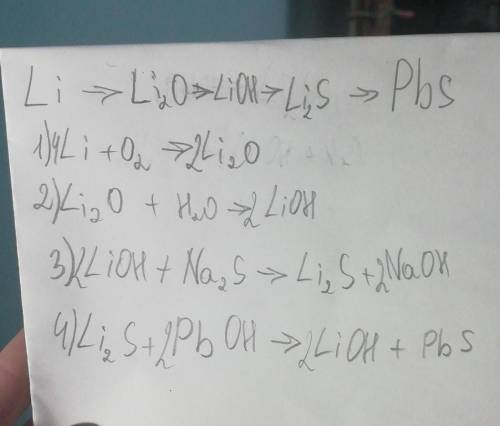 Li → Li₂O → LiOH → Li₂S → PbS
1) 4Li + O₂ → 2Li₂O
2) Li₂O + H₂O → 2LiOH
3) 2LiOH + Na₂S → Li₂S + 2NaOH
4) Li₂S + 2PbOH → 2LiOH + PbS